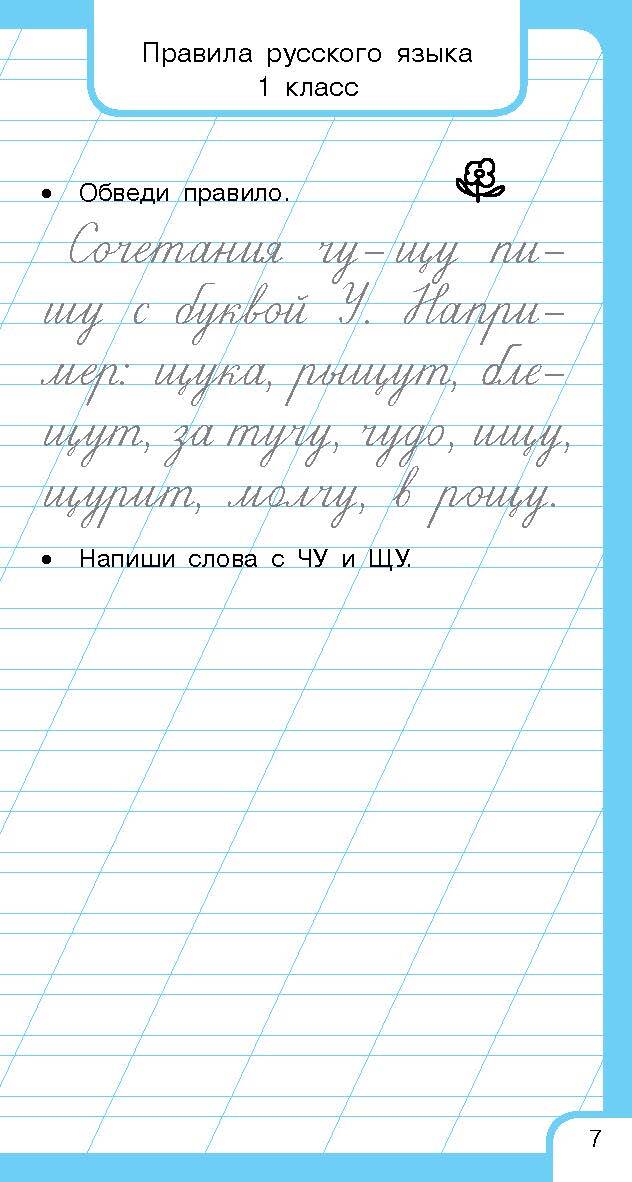 Правила русского языка
1 класс
• Обведи правило.
Сочетания чу – щу пи –
шу с буквой У. Напри –
мер: щука, рыщут, бле –
щут, за тучу, чудо, ищу,
щурит, молчу, в рощу.
• Напиши слова с ЧУ и ЩУ.
7